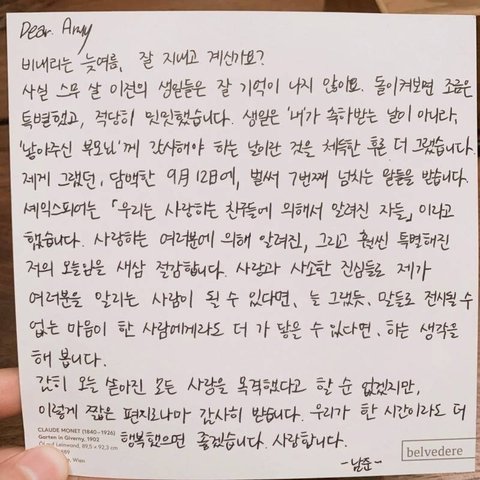 Dear. Army
비내리는 늦여름, 잘 지내고 계신가요?
사실 스무 살 이전의 생일들은 잘 기억이 나지 않아요. 돌이켜보면 조금은
특별했고, 적당히 밋밋했습니다. 생일은 '내'가 축하받는 날이 아니라,
'낳아주신 부모님'께 감사해야 하는 날이란 것을 체득한 후론 더 그랬습니다.
제게 그랬던, 담백한 9月 12日에, 벌써 7번째 넘치는 말들을 받습니다.
셰익스피어는 「우리는 사랑하는 친구들에 의해서 알려진 자들」이라고
했습니다. 사랑하는 여러분에 의해 알려진, 그리고 훨씬 특별해진
저의 오늘임을 새삼 절감합니다. 사랑과 사소한 진심들로 제가
여러분을 알리는 사람이 될 수 있다면, 늘 그랬듯, 말들로 전시될 수
없는 마음이 한 사람에게라도 더 가 닿을 수 있다면, 하는 생각을
해 봅니다.
감히 오늘 쏟아진 모든 사랑을 목격했다고 할 순 없겠지만,
이렇게 짧은 편지로나마 감사히 받습니다. 우리가 한 시간이라도 더
행복했으면 좋겠습니다. 사랑합니다.
-남준-
CLAUDE MONET (1840–1926)
Garten in Giverny, 1902
Öl auf Leinwand, 89,5 x 92,3 cm
Wien
belvedere